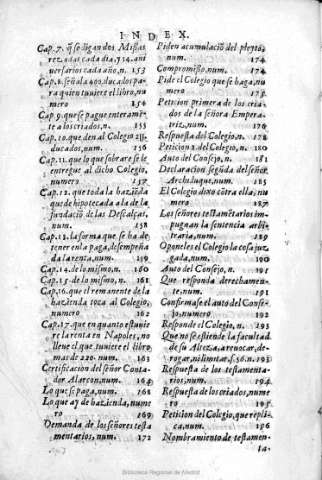 INDEX.
Cap. 7. q̃ se digan dos Missas
rezadas cada dia, y 24. ani
uersarios cada año, n. 153
Cap. 8. señala 400. ducados pa-
ra quien tuuiere el libro, nu
mero 154
Cap. 9. que se pague enterame-
te a los criados, n. 155
Cap. 10. que den al Colegio
ducados, num. 156
Cap. 11. que lo que sobrare se le
entregue al dicho Colegio,
numero 157
Cap. 12. que toda la haziẽda
quede hipotecada a la de la
fundaciõ de las Descalças,
num. 158
Cap. 13. la forma que se ha de
tener en la paga, desempeña
da la renta, num. 159
Cap. 14. de lo mismo, n. 160
Cap. 15. de lo mismo, n. 161
Cap. 16. que el remanente de la
hazienda toca al Colegio,
numero 162
Cap. 17. que en quanto estuuie
re la renta en Napoles, no
lleue el que tuuiere el libro
mas de 220. num. 163
Certificacion del señor Conta
dor Alarcon, num. 164
Lo que se paga, num. 168
Lo que ay de hazienda, nume
ro 169
Demanda de los señores testa
mentarios, num. 172
Piden acumulaciõ del pleyto,
num. 174
Compromisso, num. 174
Pide el Colegio que se haga, nu
mero 175
Peticion primera de los cria
dos de la señora Empera-
triz, num.
Respuesta del Colegio, n. 178
Peticion 2. del Colegio, n. 180
Auto del Consejo, n. 181
Declaracion segũda del señor
Archiduque, num. 185
El Colegio dixo cõtra ella, nu
mero 187
Los señores testamẽtarios im-
pugnan la sentencia arbi-
traria, num.
Oponeles el Colegio la cosa juz
gada, num. 190
Auto del Consejo, n. 191
Que responda derechamen-
te, num. 191
Confirmase el auto del Conse-
jo, numero 192
Responde el Colegio, n. 293
Que no se estiende la facultad
de su Alteza a reuocar, de-
rogar, ni limitar. s. 36. n. 193
Respuesta de los testamenta-
rios, num. 194
Respuesta de los criados, nume
ro 195
Peticion del Colegio, que repli-
ca, num. 196
Nombramiento de testamen-
ta-
Biblioteca Regional de Madrid